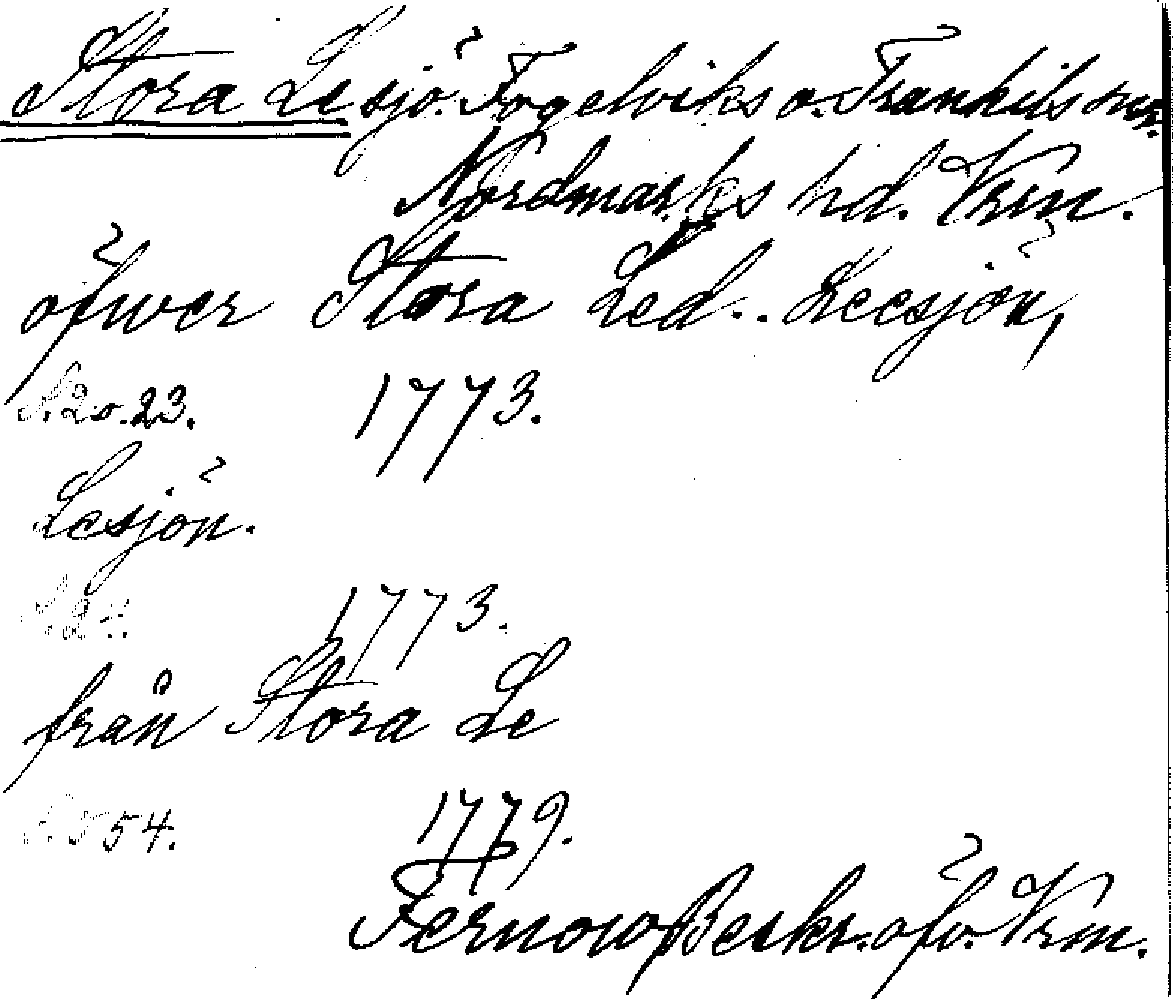 Stora Le sjö. Fogelviks o. Trankils snr.
Nordmarks hd. Vrm.
öfwer Stora Led.. Leesjön,
S. 20. 23. 1773.
Lesjön.
1773.
från Stora Le
S. 554. 1779.
Fernow Beskr. öfv. Vrm.